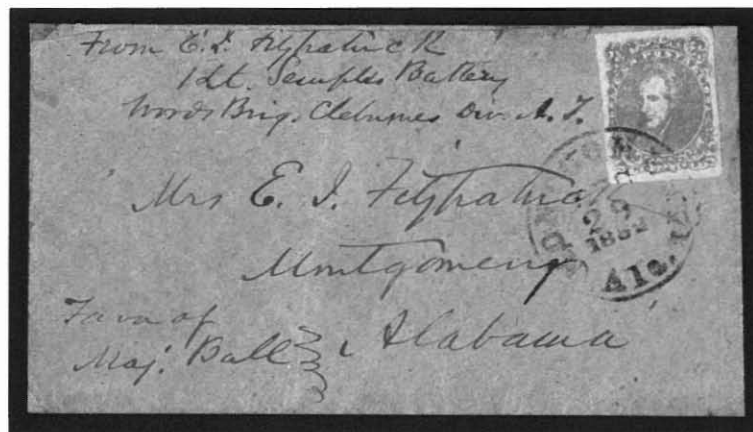 From E. I. Fitzpatrick
1 Lt. Semples Battery
Woods Brig. Cleburnes Div. A. T.
Mrs E. I. Fitzpatrick
Montgomery
Alabama
Favor of
Maj. Ball
29
1862
Ala.